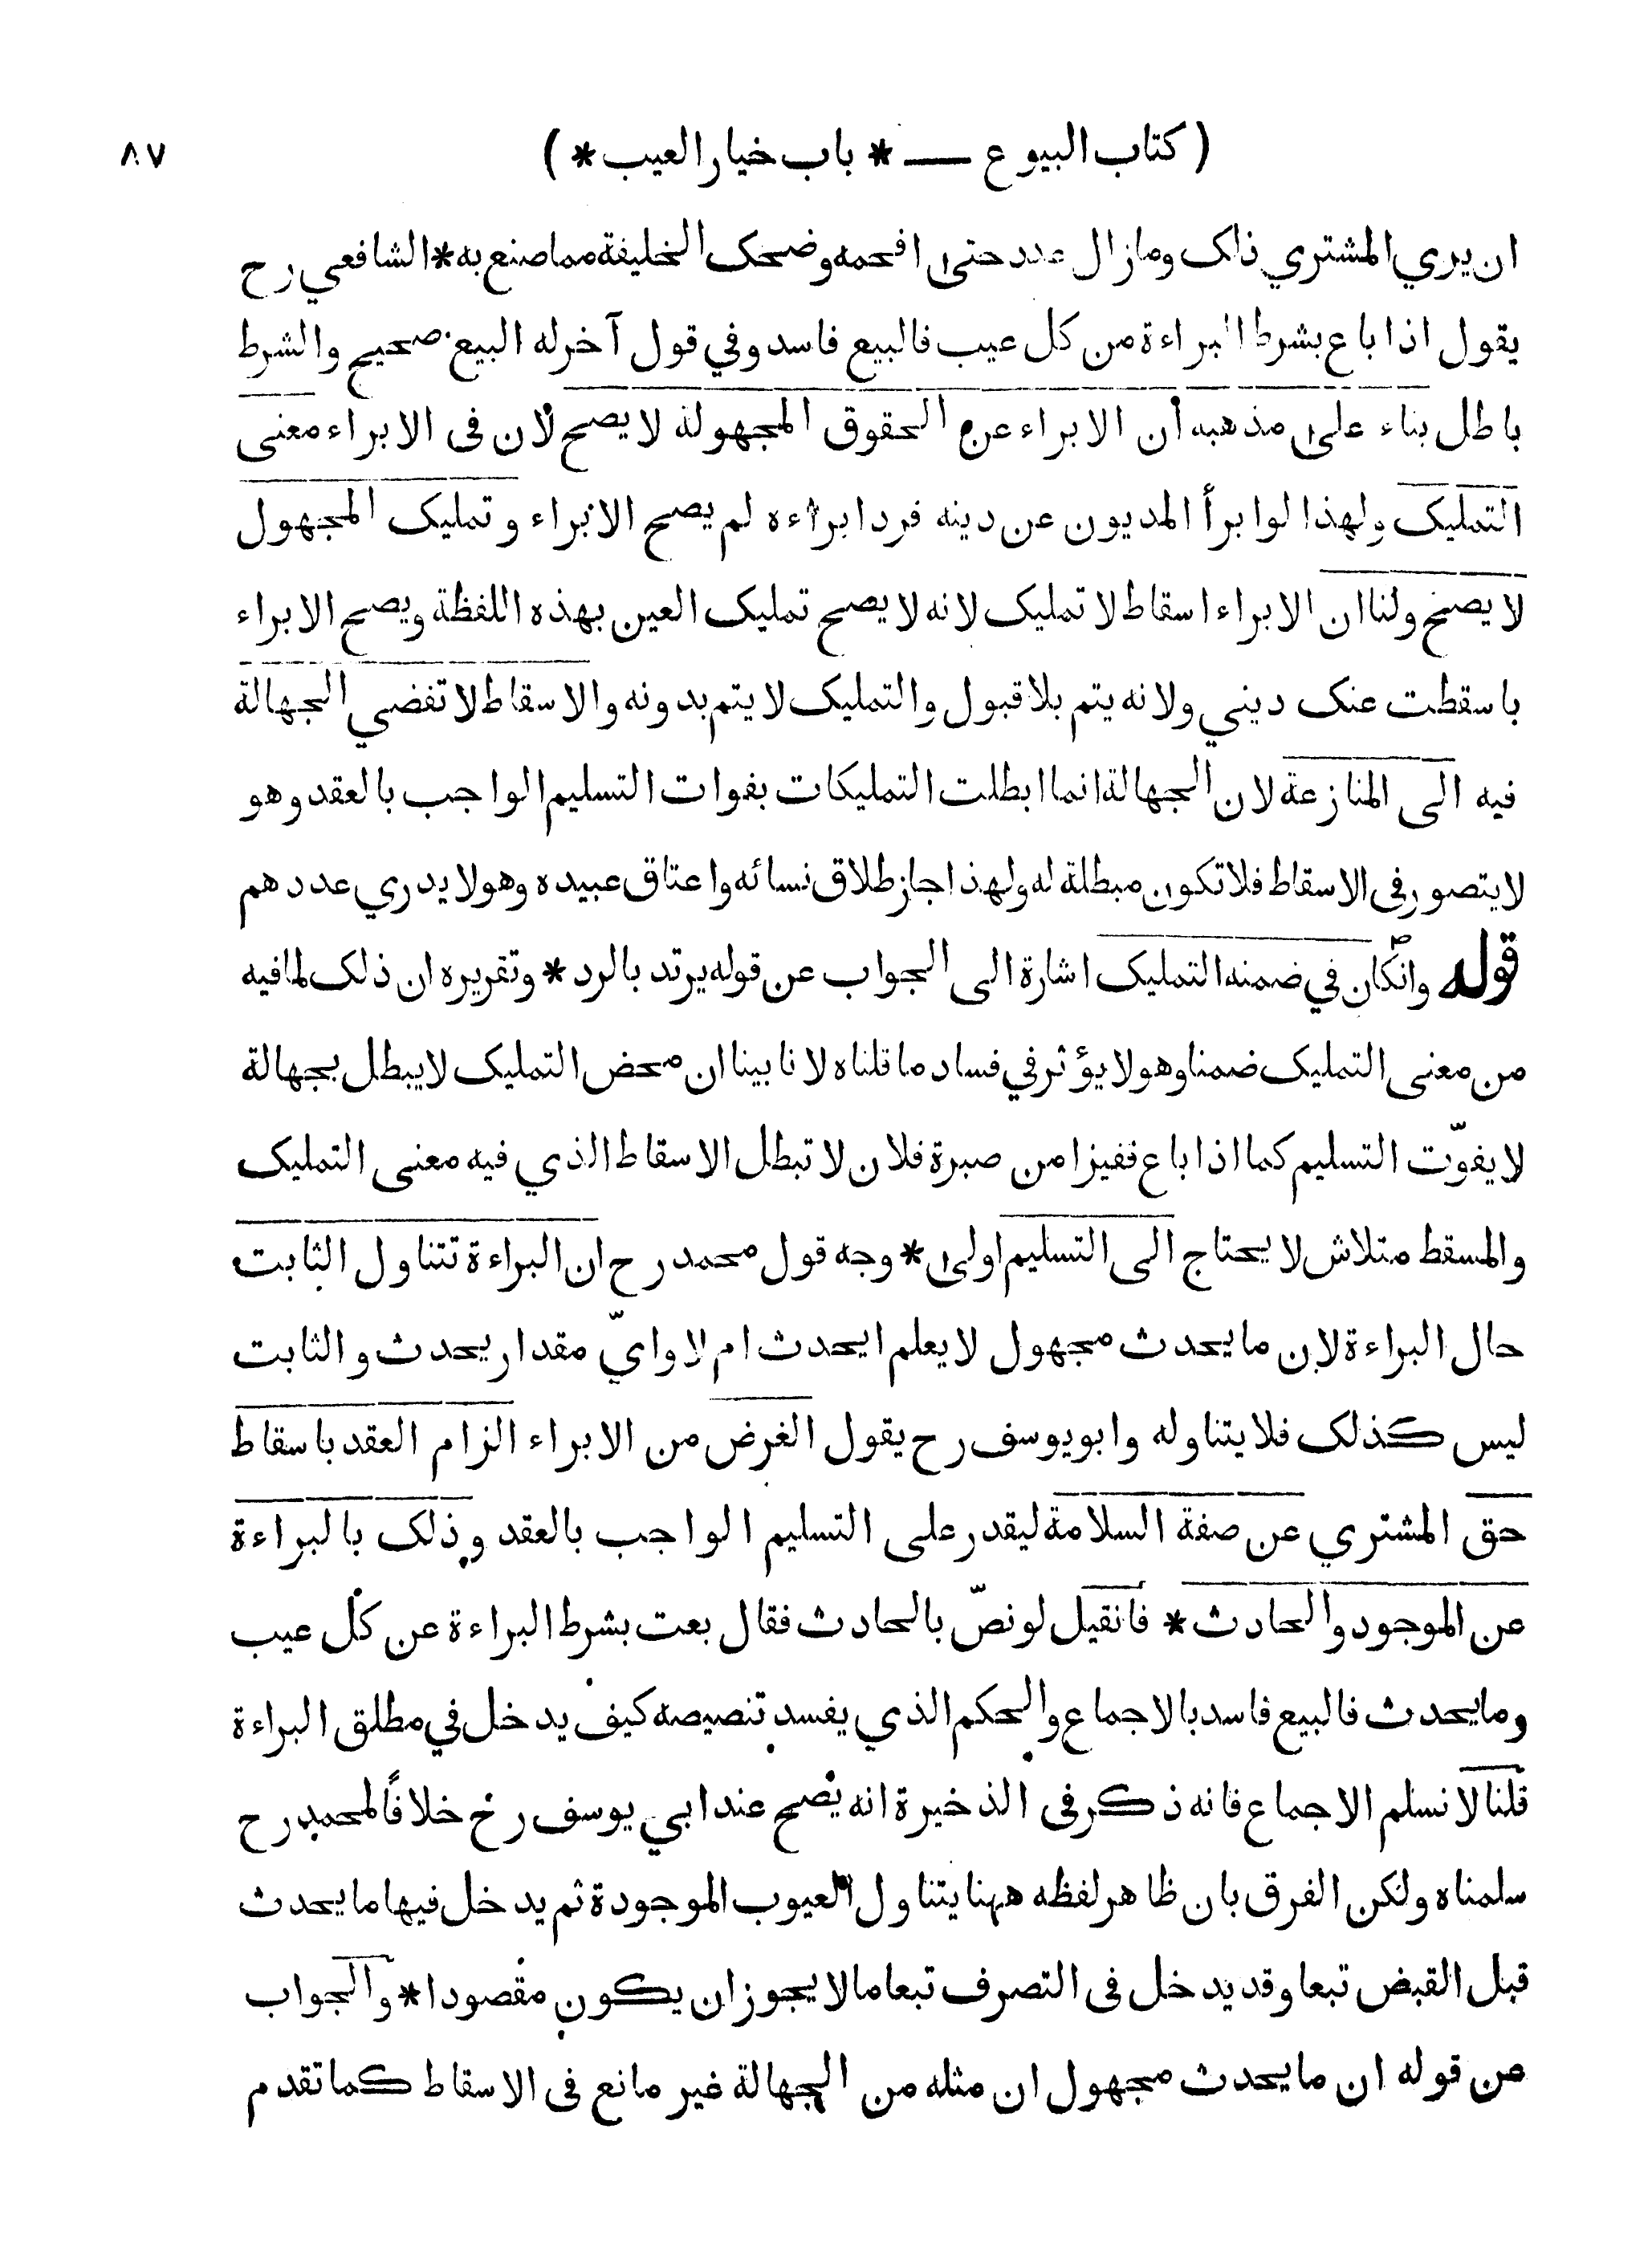 ( كتاب البيوع — * باب خيار العيب * )
٨٧
ان يري المشتري ذلك وما زال عدد حتى افحمه وضحك الخليفة مما صنع به * الشافعي رح
يقول اذا باع بشرط البراءة من كل عيب فالبيع فاسد وفي قول آخر له البيع صحيح والشرط
باطل بناء على مذهبه أن الابراء عن الحقوق المجهولة لا يصح لان في الابراء معنى
التمليك ولهذا لو ابرأ المديون عن دينه فرد ابراءه لم يصح الابراء وتمليك المجهول
لا يصح ولنا ان الابراء اسقاط لا تمليك لانه لا يصح تمليك العين بهذه اللفظة ويصح الابراء
باسقطت عنك ديني ولانه يتم بلا قبول والتمليك لا يتم بدونه والاسقاط لا تفضي الجهالة
فيه الى المنازعة لان الجهالة انما ابطلت التمليكات بفوات التسليم الواجب بالعقد وهو
لا يتصور في الاسقاط فلا تكون مبطلة له ولهذا جاز طلاق نسائه واعتاق عبيده وهو لا يدري عددهم
قوله وانكان في ضمنه التمليك اشارة الى الجواب عن قوله يرتد بالرد * وتقريره ان ذلك لما فيه
من معنى التمليك ضمنا وهو لا يؤثر في فساد ما قلناه لانا بينا ان محض التمليك لا يبطل بجهالة
لا يفوّت التسليم كما اذا باع قفيزا من صبرة فلان لا تبطل الاسقاط الذي فيه معنى التمليك
والمسقط متلاش لا يحتاج الى التسليم اولى * وجه قول محمد رح ان البراءة تتناول الثابت
حال البراءة لان ما يحدث مجهول لا يعلم ايحدث ام لا وايّ مقدار يحدث والثابت
ليس كذلك فلا يتناوله وابو يوسف رح يقول الغرض من الابراء الزام العقد باسقاط
حق المشتري عن صفة السلامة ليقدر على التسليم الواجب بالعقد وذلك بالبراءة
عن الموجود والحادث * فانقيل لو نصّ بالحادث فقال بعت بشرط البراءة عن كل عيب
وما يحدث فالبيع فاسد بالاجماع والحكم الذي يفسد تنصيصه كيف يدخل في مطلق البراءة
قلنا لا نسلم الاجماع فانه ذكر في الذخيرة انه يصح عند ابي يوسف رح خلافًا لمحمد رح
سلمناه ولكن الفرق بان ظاهر لفظه ههنا يتناول العيوب الموجودة ثم يدخل فيها ما يحدث
قبل القبض تبعا وقد يدخل في التصرف تبعا ما لا يجوز ان يكون مقصودا * والجواب
من قوله ان ما يحدث مجهول ان مثله من الجهالة غير مانع في الاسقاط كما تقدم